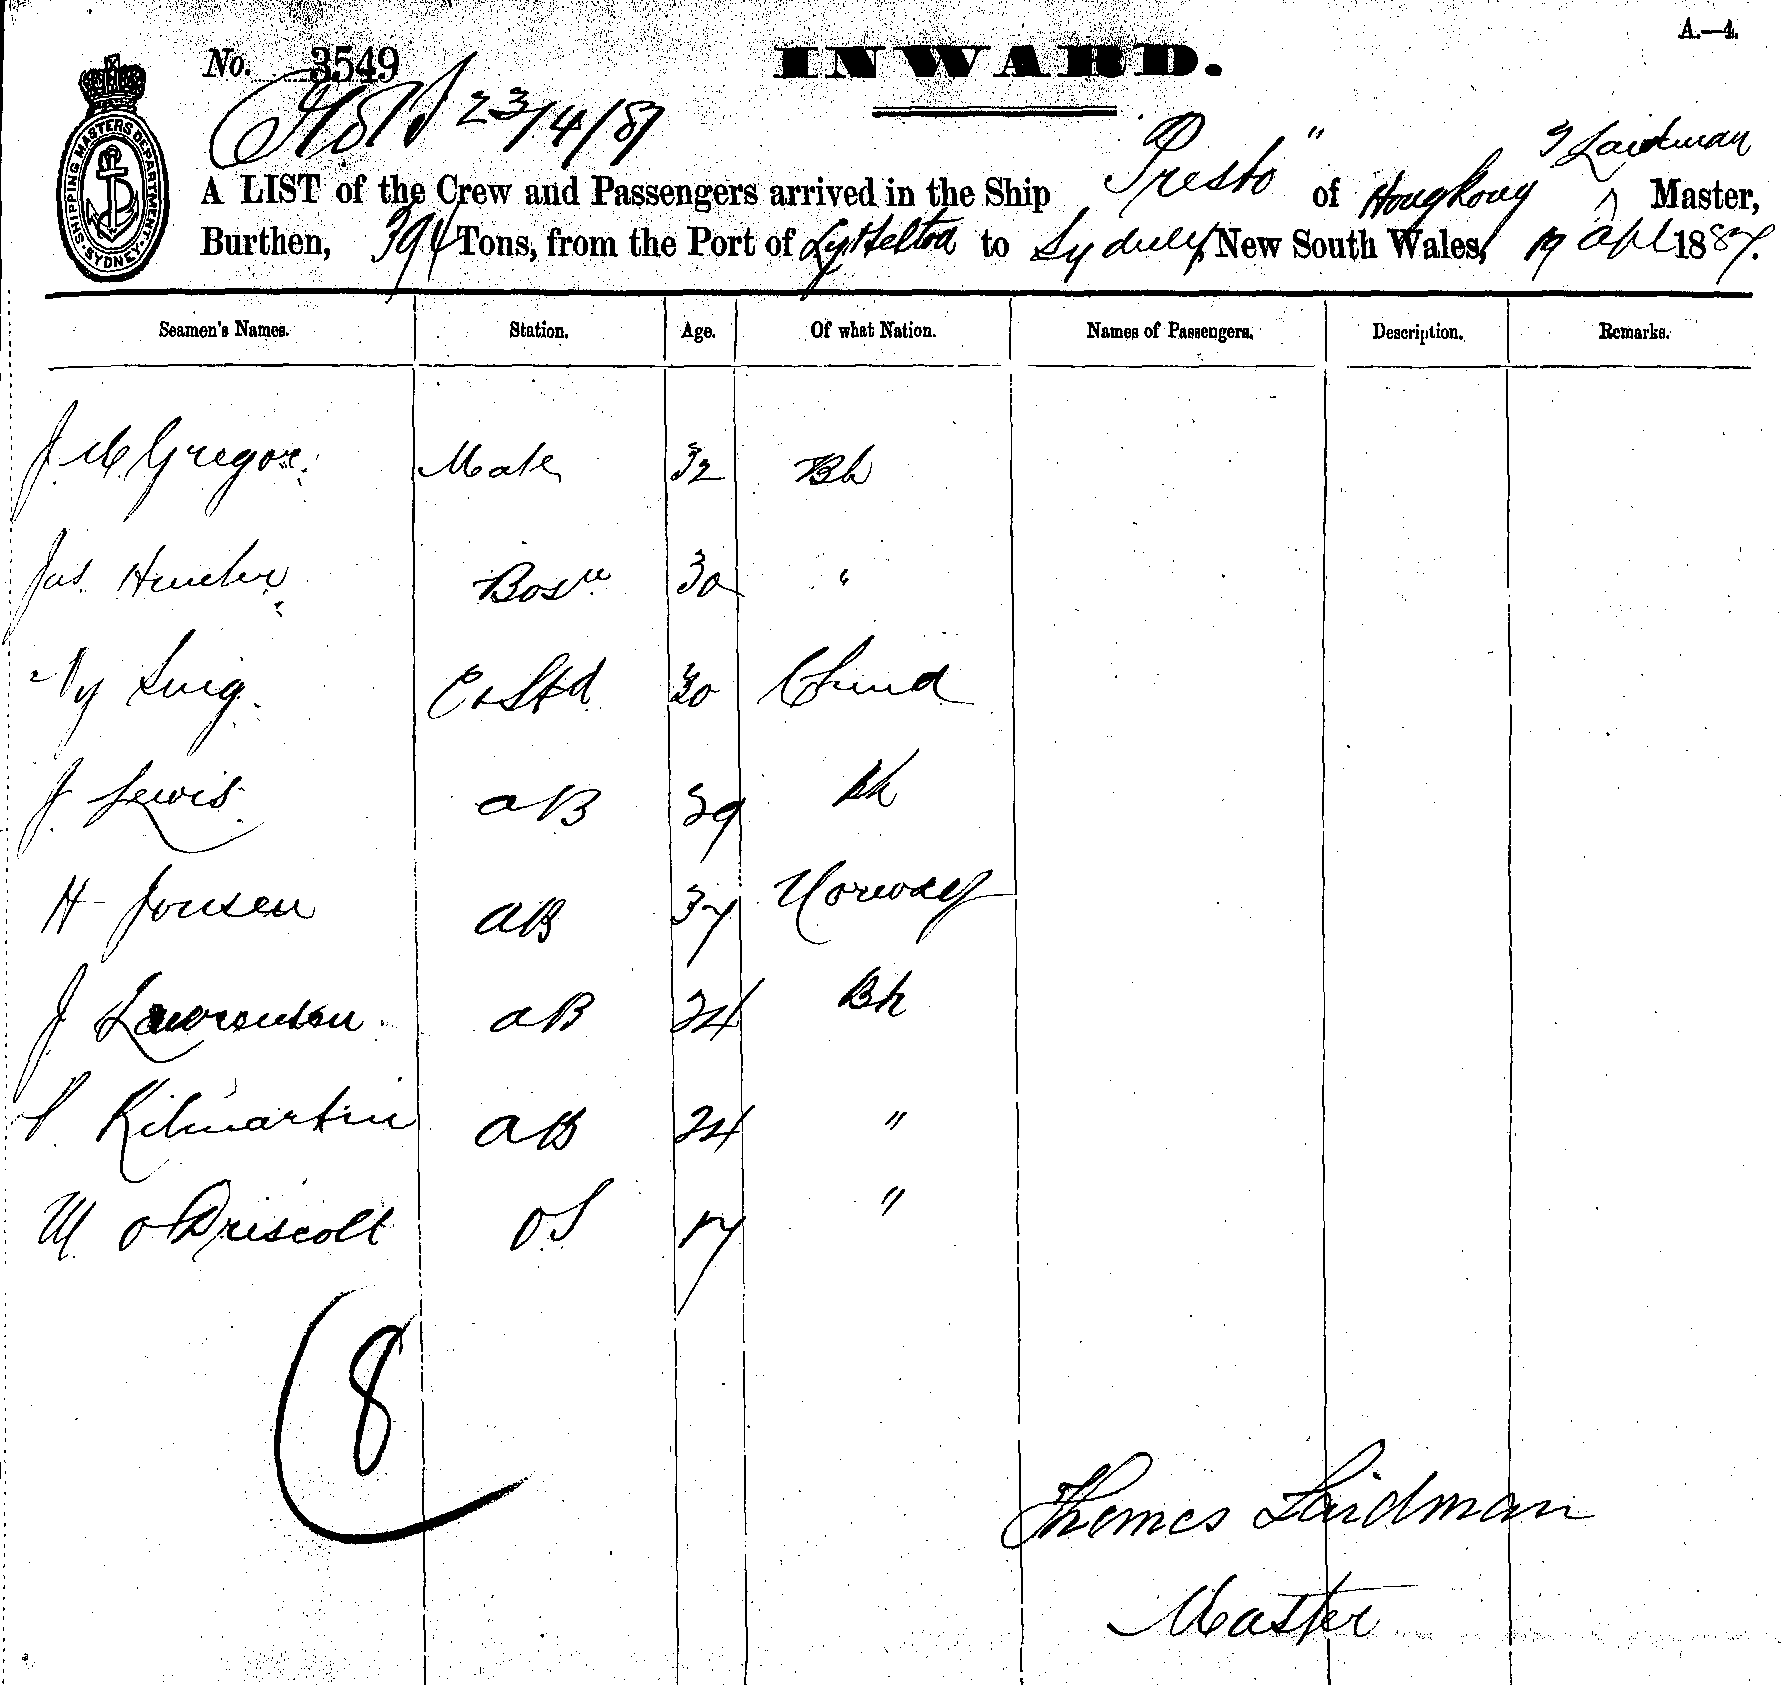 A.—4.
No. 3549
INWARD.
23/4/87
SHIPPING MASTERS DEPARTMENT SYDNEY
T Laidman
A LIST of the Crew and Passengers arrived in the Ship "Presto" of Hongkong Master,
Burthen, 394 Tons, from the Port of Lyttelton to Sydney, New South Wales, 19 Apl 1887.
Seamen's Names. Station. Age. Of what Nation. Names of Passengers. Description. Remarks.
J. McGregor Mate 32 Bh
Jas. Hunter Bosn 30 "
Ny Sing C & Std 30 China
J. Lewis AB 29 Bh
H Jonsen AB 37 Norway
J Lawrenson AB 24 Bh
P. Kilmartin AB 24 "
M. O Driscoll OS 17 "
8
Thomas Laidman
Master